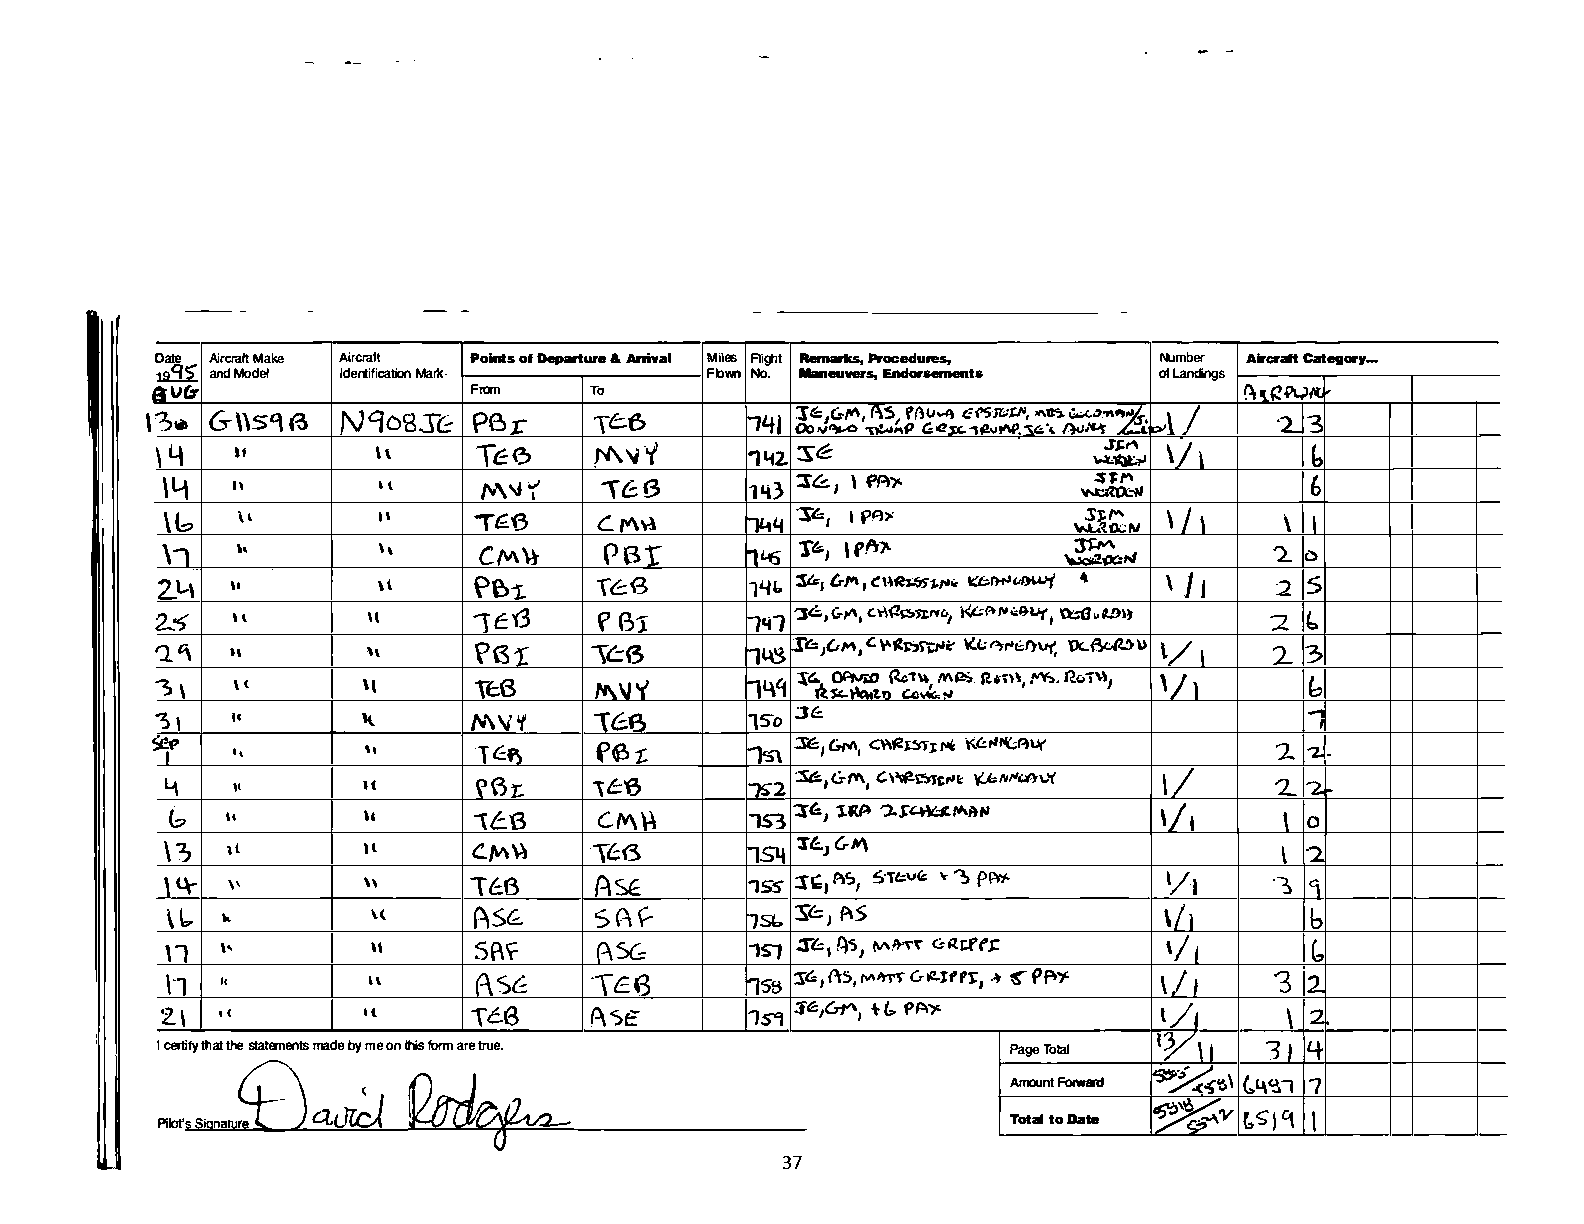 Date Aircraft Make Aircraft Points of Departure & Arrival Miles Flight Remarks, Procedures, Number Aircraft Category...
1995 and Model Identification Mark- Flown No. Maneuvers, Endorsements of Landings
AUG From To AIRPLANE
13 G1159B N908JE PBI TEB 741 JE, GM, AS, PAULA EPSTEIN, MRS GOLDMAN, 1/ 2 3
DONALD TRUMP ERIC TRUMP, JE's AUNT
14 " " TEB MVY 742 JE JIM WERDEN 1/1 6
14 " " MVY TEB 743 JE, 1 PAX JIM WERDEN 6
16 " " TEB CMH 744 JE, 1 PAX JIM WERDEN 1/1 1 1
17 " " CMH PBI 745 JE, 1 PAX JIM WORDEN 2 0
24 " " PBI TEB 746 JE, GM, CHRISSINE KEANEALLY 1/1 2 5
25 " " TEB PBI 747 JE, GM, CHRISSINE, KEANEALY, DEBURAH 2 6
29 " " PBI TEB 748 JE, GM, CHRISTINE KEANEALY, DEBORAH 1/1 2 3
31 " " TEB MVY 749 JE, DAVID ROTH, MRS. ROTH, MS. ROTH, 1/1 6
RICHARD COHEN
31 " " MVY TEB 750 JE 7
SEP
1 " " TEB PBI 751 JE, GM, CHRISTINE KENNEALY 2 2
4 " " PBI TEB 752 JE, GM, CHRISTINE KENNEALY 1/ 2 2
6 " " TEB CMH 753 JE, IRA ZICHERMAN 1/1 1 0
13 " " CMH TEB 754 JE, GM 1 2
14 " " TEB ASE 755 JE, AS, STEVE + 3 PAX 1/1 3 9
16 " " ASE SAF 756 JE, AS 1/1 6
17 " " SAF ASE 757 JE, AS, MATT GRIPPI 1/1 6
17 " " ASE TEB 758 JE, AS, MATT GRIPPI, + 5 PAX 1/1 3 2
21 " " TEB ASE 759 JE, GM, +6 PAX 1/1 1 2
I certify that the statements made by me on this form are true. Page Total 13/11 31 4
Amount Forward 5581 6487 7
Pilot's Signature David Rodgers Total to Date 6519 1
37